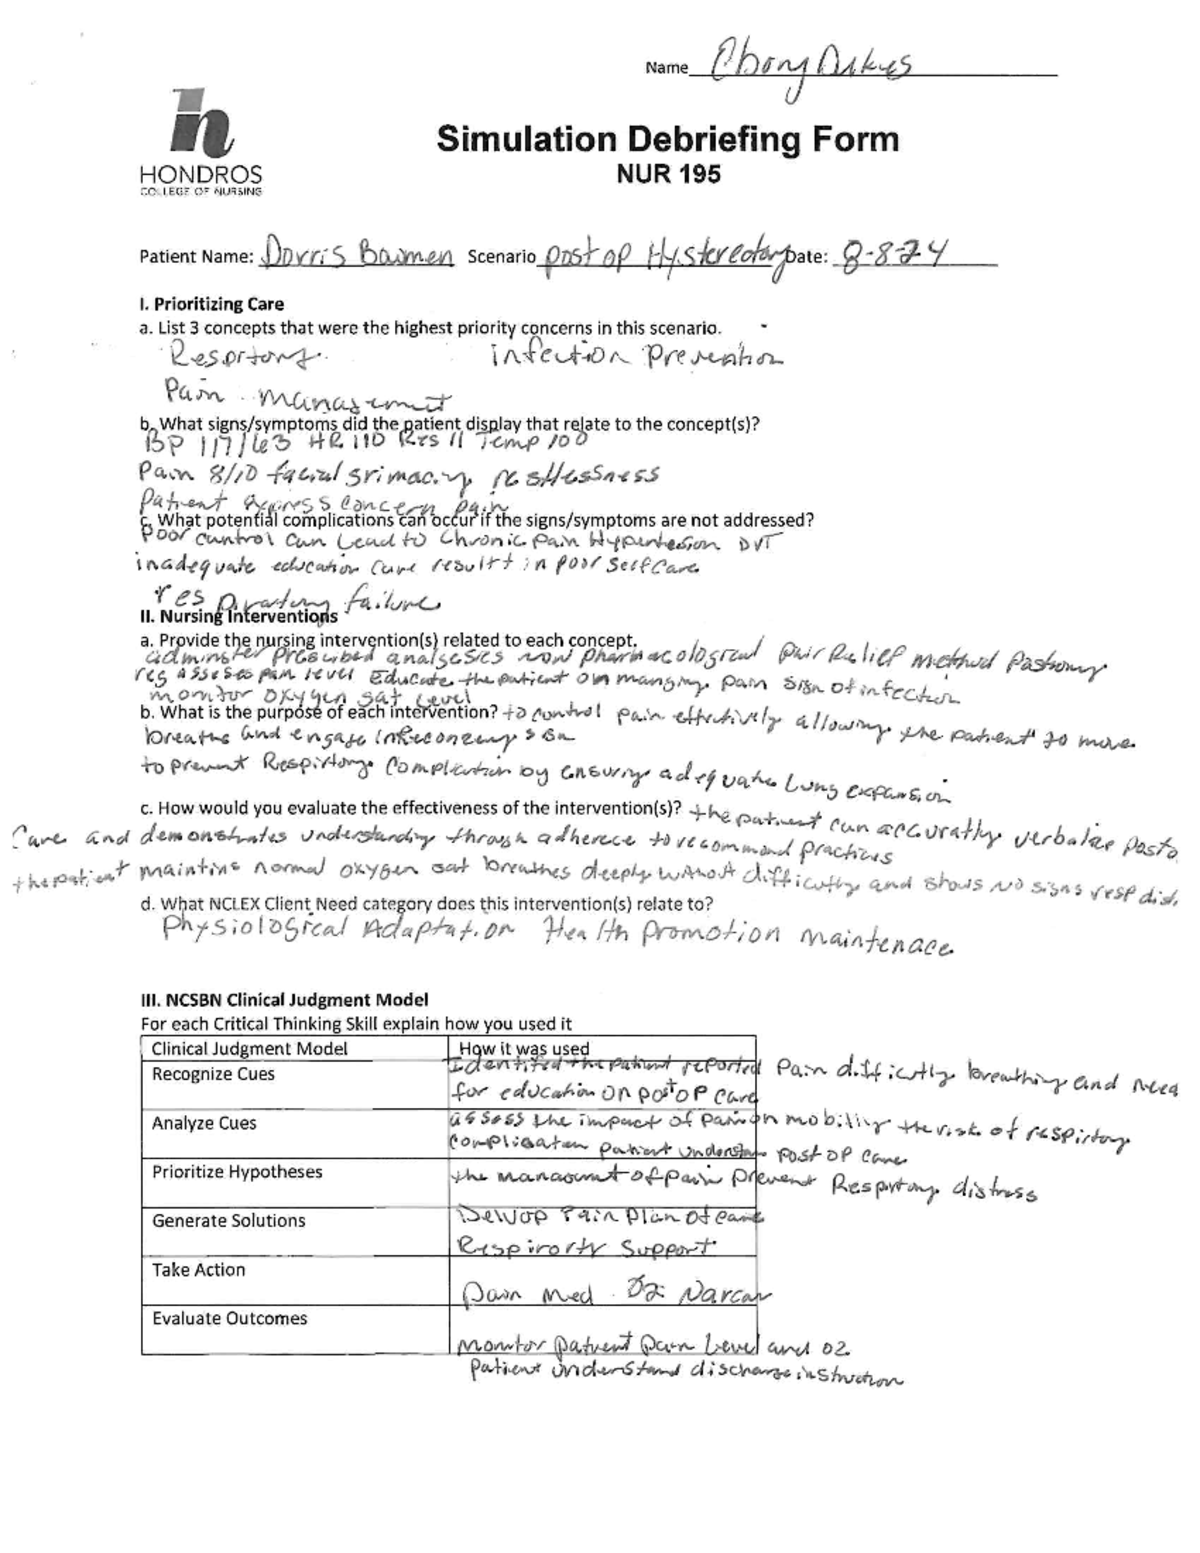 Name Ebony Dukes
HONDROS
COLLEGE OF NURSING
Simulation Debriefing Form
NUR 195
Patient Name: Dorris Bowmen Scenario post op Hysterectomy Date: 8-8-24
I. Prioritizing Care
a. List 3 concepts that were the highest priority concerns in this scenario.
infection Prevention
Pain management
b. What signs/symptoms did the patient display that relate to the concept(s)?
BP 117/63 HR 110 Res 11 Temp 100
Pain 8/10 facial grimacing restlessness
Patient express concern pain
c. What potential complications can occur if the signs/symptoms are not addressed?
Poor control can Lead to Chronic pain Hypertension DVT
inadequate education cane result in poor self care
respiratory failure
II. Nursing Interventions
a. Provide the nursing intervention(s) related to each concept.
adminster prescribed analgesics non pharmacological pain Relief method
reg assess pain level Educate the patient on manging pain sign of infection
monitor oxygen sat level
b. What is the purpose of each intervention? to control pain effectively allowing the patient to move
breathe and engage in
to prevent Respirtory Complication by ensuring adequate Lung expansion
c. How would you evaluate the effectiveness of the intervention(s)? the patient can accuratly verbalize Posto
Care and demonstrates understanding through adherece to recommond practices
the patient maintins normal oxygen sat breathes deeply without difficulty and shows no signs resp dist.
d. What NCLEX Client Need category does this intervention(s) relate to?
Physiological Adaptation Health promotion maintenace
III. NCSBN Clinical Judgment Model
For each Critical Thinking Skill explain how you used it
Clinical Judgment Model How it was used
Recognize Cues Identifed the patient reported Pain difficulty breathing and need
for education on post op care
Analyze Cues assess the impact of pain on mobility the risk of respirtory
patient understan post op care
Prioritize Hypotheses the of pain prevent Respirtory distress
Generate Solutions Develop Pain Plan of care
Respirorty Support
Take Action Pain med O2 Narcan
Evaluate Outcomes
monitor patient pain level and O2
patient understand discharge instruction